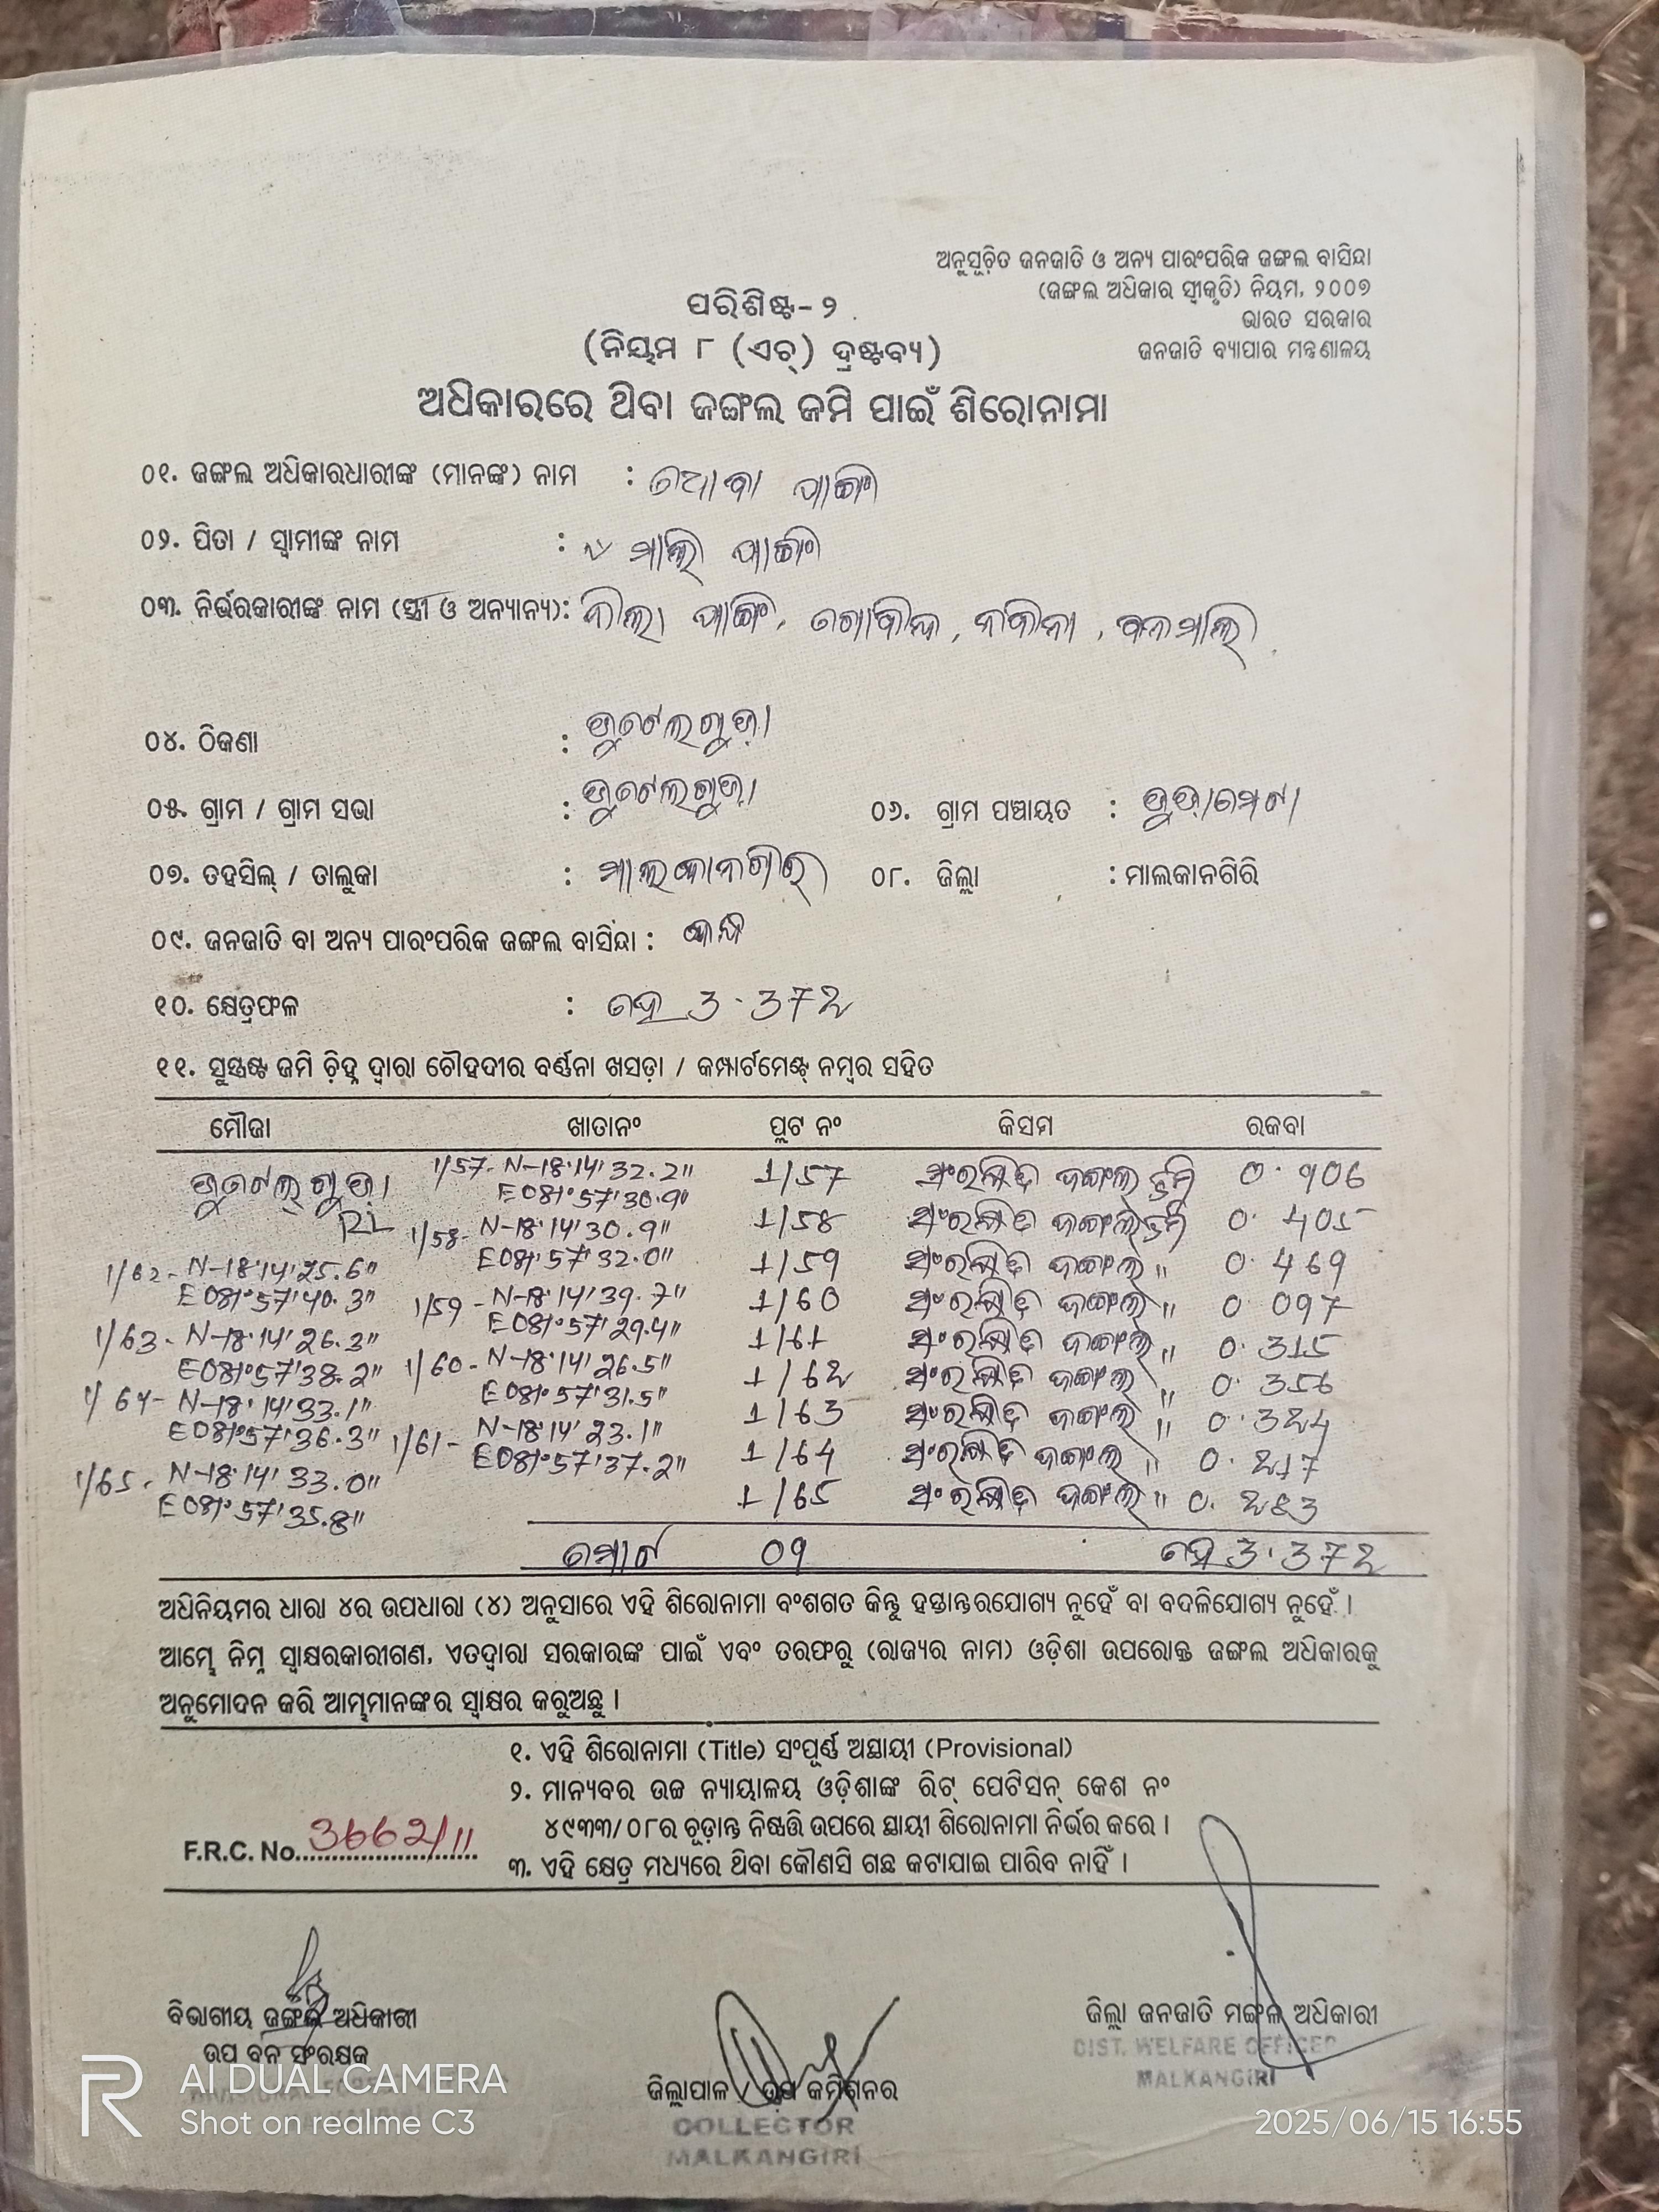 ଅନୁସୂଚିତ ଜନଜାତି ଓ ଅନ୍ୟ ପାରଂପରିକ ଜଙ୍ଗଲ ବାସିନ୍ଦା
(ଜଙ୍ଗଲ ଅଧିକାର ସ୍ୱୀକୃତି) ନିୟମ, ୨୦୦୭
ଭାରତ ସରକାର
ଜନଜାତି ବ୍ୟାପାର ମନ୍ତ୍ରଣାଳୟ
ପରିଶିଷ୍ଟ-୨
(ନିୟମ ୮ (ଏଚ୍) ଦ୍ରଷ୍ଟବ୍ୟ)
ଅଧିକାରରେ ଥିବା ଜଙ୍ଗଲ ଜମି ପାଇଁ ଶିରୋନାମା
୦୧. ଜଙ୍ଗଲ ଅଧିକାରଧାରୀଙ୍କ (ମାନଙ୍କ) ନାମ :
୦୨. ପିତା / ସ୍ୱାମୀଙ୍କ ନାମ : ମାଲି
୦୩. ନିର୍ଭରକାରୀଙ୍କ ନାମ (ସ୍ତ୍ରୀ ଓ ଅନ୍ୟାନ୍ୟ):
୦୪. ଠିକଣା :
୦୫. ଗ୍ରାମ / ଗ୍ରାମ ସଭା : ୦୬. ଗ୍ରାମ ପଞ୍ଚାୟତ :
୦୭. ତହସିଲ୍ / ତାଲୁକା : ମାଲକାନଗିରି ୦୮. ଜିଲ୍ଲା : ମାଲକାନଗିରି
୦୯. ଜନଜାତି ବା ଅନ୍ୟ ପାରଂପରିକ ଜଙ୍ଗଲ ବାସିନ୍ଦା :
୧୦. କ୍ଷେତ୍ରଫଳ : ହେ 3.372
୧୧. ସୁସ୍ପଷ୍ଟ ଜମି ଚିହ୍ନ ଦ୍ୱାରା ଚୌହଦୀର ବର୍ଣ୍ଣନା ଖସଡ଼ା / କମ୍ପାର୍ଟମେଣ୍ଟ୍ ନମ୍ବର ସହିତ
ମୌଜା ଖାତାନଂ ପ୍ଲଟ ନଂ କିସମ ରକବା
1/57- N-18°14'32.2" 1/57 ସଂରକ୍ଷିତ ଜଙ୍ଗଲ ଭୂମି 0.906
E081°57'30.9"
1/58- N-18°14'30.9" 1/58 ସଂରକ୍ଷିତ ଜଙ୍ଗଲ ଭୂମି 0.405
E081°57'32.0"
1/62- N-18°14'25.6" 1/59 ସଂରକ୍ଷିତ ଜଙ୍ଗଲ " 0.469
E081°57'40.3" 1/59- N-18°14'39.7" 1/60 ସଂରକ୍ଷିତ ଜଙ୍ଗଲ " 0.097
E081°57'29.4"
1/63- N-18°14'26.3" 1/61 ସଂରକ୍ଷିତ ଜଙ୍ଗଲ " 0.315
E081°57'38.2" 1/60- N-18°14'26.5" 1/62 ସଂରକ୍ଷିତ ଜଙ୍ଗଲ " 0.356
E081°57'31.5"
1/64- N-18°14'33.1" 1/63 ସଂରକ୍ଷିତ ଜଙ୍ଗଲ " 0.324
E081°57'36.3" 1/61- N-18°14'23.1" 1/64 ସଂରକ୍ଷିତ ଜଙ୍ଗଲ " 0.217
E081°57'37.2"
1/65- N-18°14'33.0" 1/65 ସଂରକ୍ଷିତ ଜଙ୍ଗଲ " 0.283
E081°57'35.8"
ମୋଟ 09 ହେ 3.372
ଅଧିନିୟମର ଧାରା ୪ର ଉପଧାରା (୪) ଅନୁସାରେ ଏହି ଶିରୋନାମା ବଂଶଗତ କିନ୍ତୁ ହସ୍ତାନ୍ତରଯୋଗ୍ୟ ନୁହେଁ ବା ବଦଳିଯୋଗ୍ୟ ନୁହେଁ ।
ଆମ୍ଭେ ନିମ୍ନ ସ୍ୱାକ୍ଷରକାରୀଗଣ, ଏତଦ୍ୱାରା ସରକାରଙ୍କ ପାଇଁ ଏବଂ ତରଫରୁ (ରାଜ୍ୟର ନାମ) ଓଡ଼ିଶା ଉପରୋକ୍ତ ଜଙ୍ଗଲ ଅଧିକାରକୁ
ଅନୁମୋଦନ କରି ଆମ୍ଭମାନଙ୍କର ସ୍ୱାକ୍ଷର କରୁଅଛୁ ।
୧. ଏହି ଶିରୋନାମା (Title) ସଂପୂର୍ଣ୍ଣ ଅସ୍ଥାୟୀ (Provisional)
୨. ମାନ୍ୟବର ଉଚ୍ଚ ନ୍ୟାୟାଳୟ ଓଡ଼ିଶାଙ୍କ ରିଟ୍ ପେଟିସନ୍ କେଶ ନଂ
୪୯୩୩/୦୮ର ଚୂଡ଼ାନ୍ତ ନିଷ୍ପତ୍ତି ଉପରେ ସ୍ଥାୟୀ ଶିରୋନାମା ନିର୍ଭର କରେ ।
F.R.C. No. 3662/11
୩. ଏହି କ୍ଷେତ୍ର ମଧ୍ୟରେ ଥିବା କୌଣସି ଗଛ କଟାଯାଇ ପାରିବ ନାହିଁ ।
ବିଭାଗୀୟ ଜଙ୍ଗଲ ଅଧିକାରୀ
ଉପ ବନ ସଂରକ୍ଷକ
ଜିଲ୍ଲାପାଳ / ଉପ କମିଶନର
COLLECTOR
MALKANGIRI
ଜିଲ୍ଲା ଜନଜାତି ମଙ୍ଗଳ ଅଧିକାରୀ
DIST. WELFARE OFFICER
MALKANGIRI
AI DUAL CAMERA
Shot on realme C3
2025/06/15 16:55